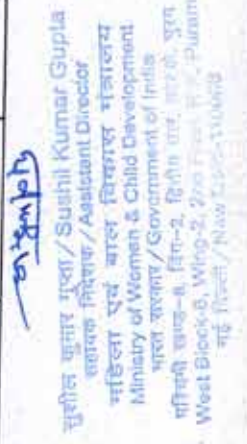 सुशील कुमार गुप्ता/Sushil Kumar Gupta
सहायक निदेशक/Assistant Director
महिला एवं बाल विकास मंत्रालय
Ministry of Women & Child Development
भारत सरकार/Government of India
पश्चिमी खण्ड-8, विंग-2, द्वितीय तल, आर.के. पुरम
West Block-8, Wing-2, 2nd Floor, R.K. Puram
नई दिल्ली/New Delhi